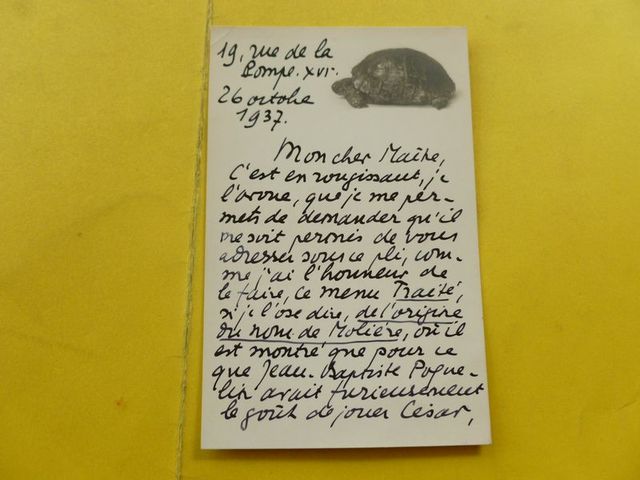 19, rue de la
Pompe. XVIe.
26 octobre
1937.
Mon cher Maître,
C'est en rougissant, je
l'avoue, que je me per-
mets de demander qu'il
me soit permis de vous
adresser sous ce pli, com-
me j'ai l'honneur de
le faire, ce menu Traité,
si je l'ose dire, de l'origine
du nom de Molière, où il
est montré que pour ce
que Jean-Baptiste Poque-
lin avait furieusement
le goût de jouer César,